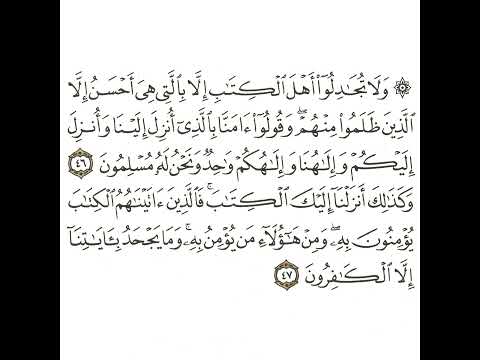 ۞ وَلَا تُجَـٰدِلُوٓا۟ أَهْلَ ٱلْكِتَـٰبِ إِلَّا بِٱلَّتِى هِىَ أَحْسَنُ إِلَّا
ٱلَّذِينَ ظَلَمُوا۟ مِنْهُمْ ۖ وَقُولُوٓا۟ ءَامَنَّا بِٱلَّذِىٓ أُنزِلَ إِلَيْنَا وَأُنزِلَ
إِلَيْكُمْ وَإِلَـٰهُنَا وَإِلَـٰهُكُمْ وَٰحِدٌ وَنَحْنُ لَهُۥ مُسْلِمُونَ ٤٦
وَكَذَٰلِكَ أَنزَلْنَآ إِلَيْكَ ٱلْكِتَـٰبَ ۚ فَٱلَّذِينَ ءَاتَيْنَـٰهُمُ ٱلْكِتَـٰبَ
يُؤْمِنُونَ بِهِۦ ۖ وَمِنْ هَـٰٓؤُلَآءِ مَن يُؤْمِنُ بِهِۦ ۚ وَمَا يَجْحَدُ بِـَٔايَـٰتِنَآ
إِلَّا ٱلْكَـٰفِرُونَ ٤٧